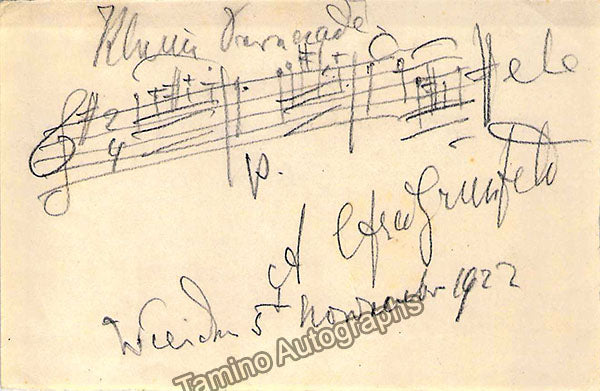 Kleine Serenade
2
4
etc
p.
Alfred Grünfeld
Wien den 5t November 1922
Tamino Autographs